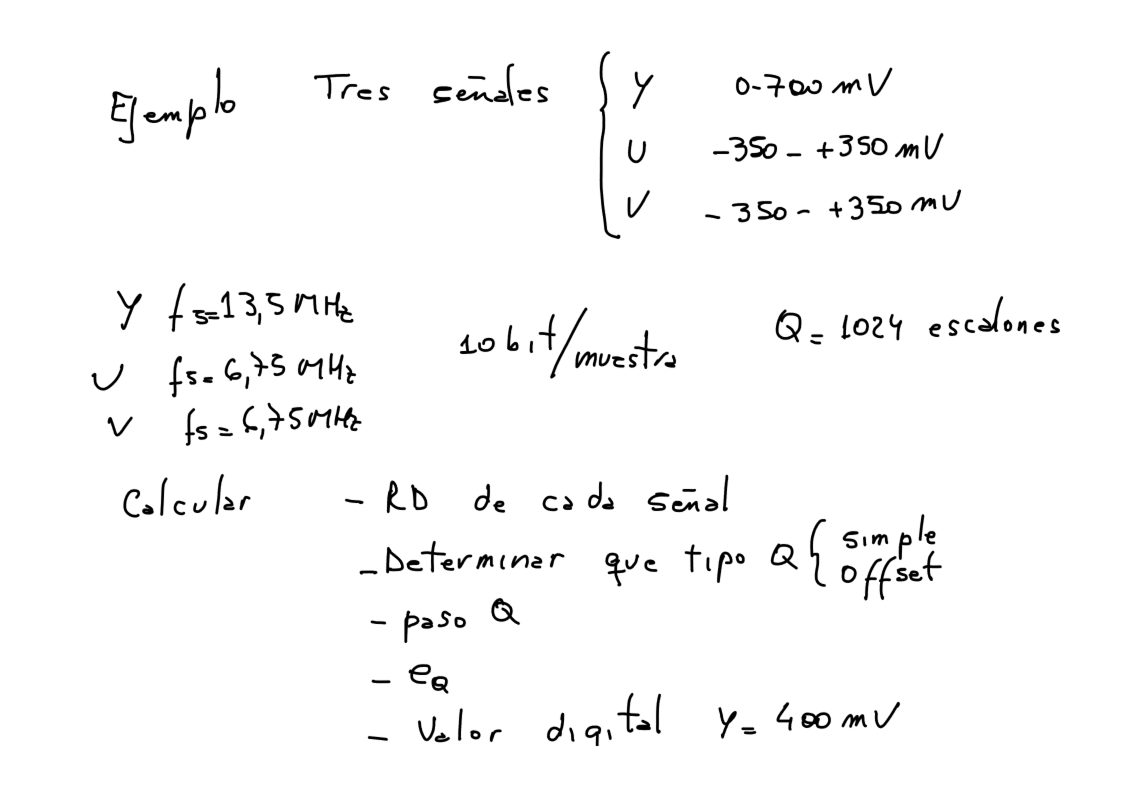 Ejemplo Tres señales { Y 0-700 mV
U -350 - +350 mV
V - 350 - +350 mV
Y fs=13,5 MHz
U fs= 6,75 MHz
V fs = 6,75 MHz
10 bit/muestra Q = 1024 escalones
Calcular - RD de cada señal
- Determinar que tipo Q { simple
offset
- paso Q
- eQ
- Valor digital Y = 400 mV